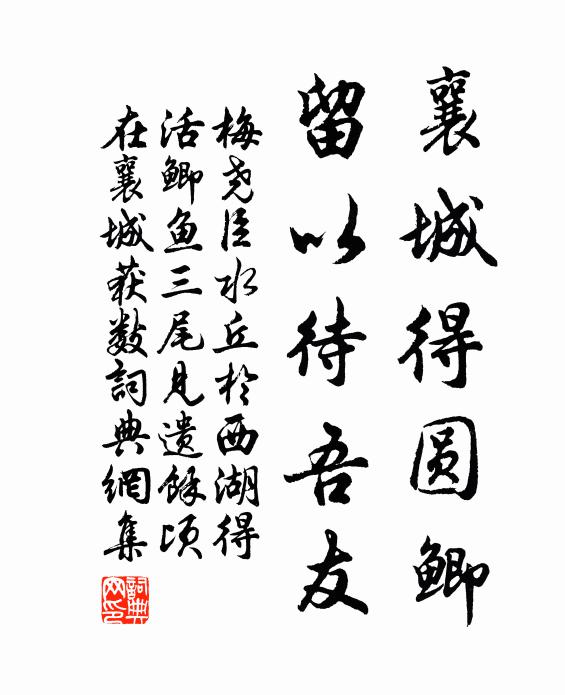 襄城得圆鲫
留以待吾友
梅尧臣水丘於西湖得
活鲫鱼三尾见遗馀顷
在襄城获数詞典網集
詞典网印